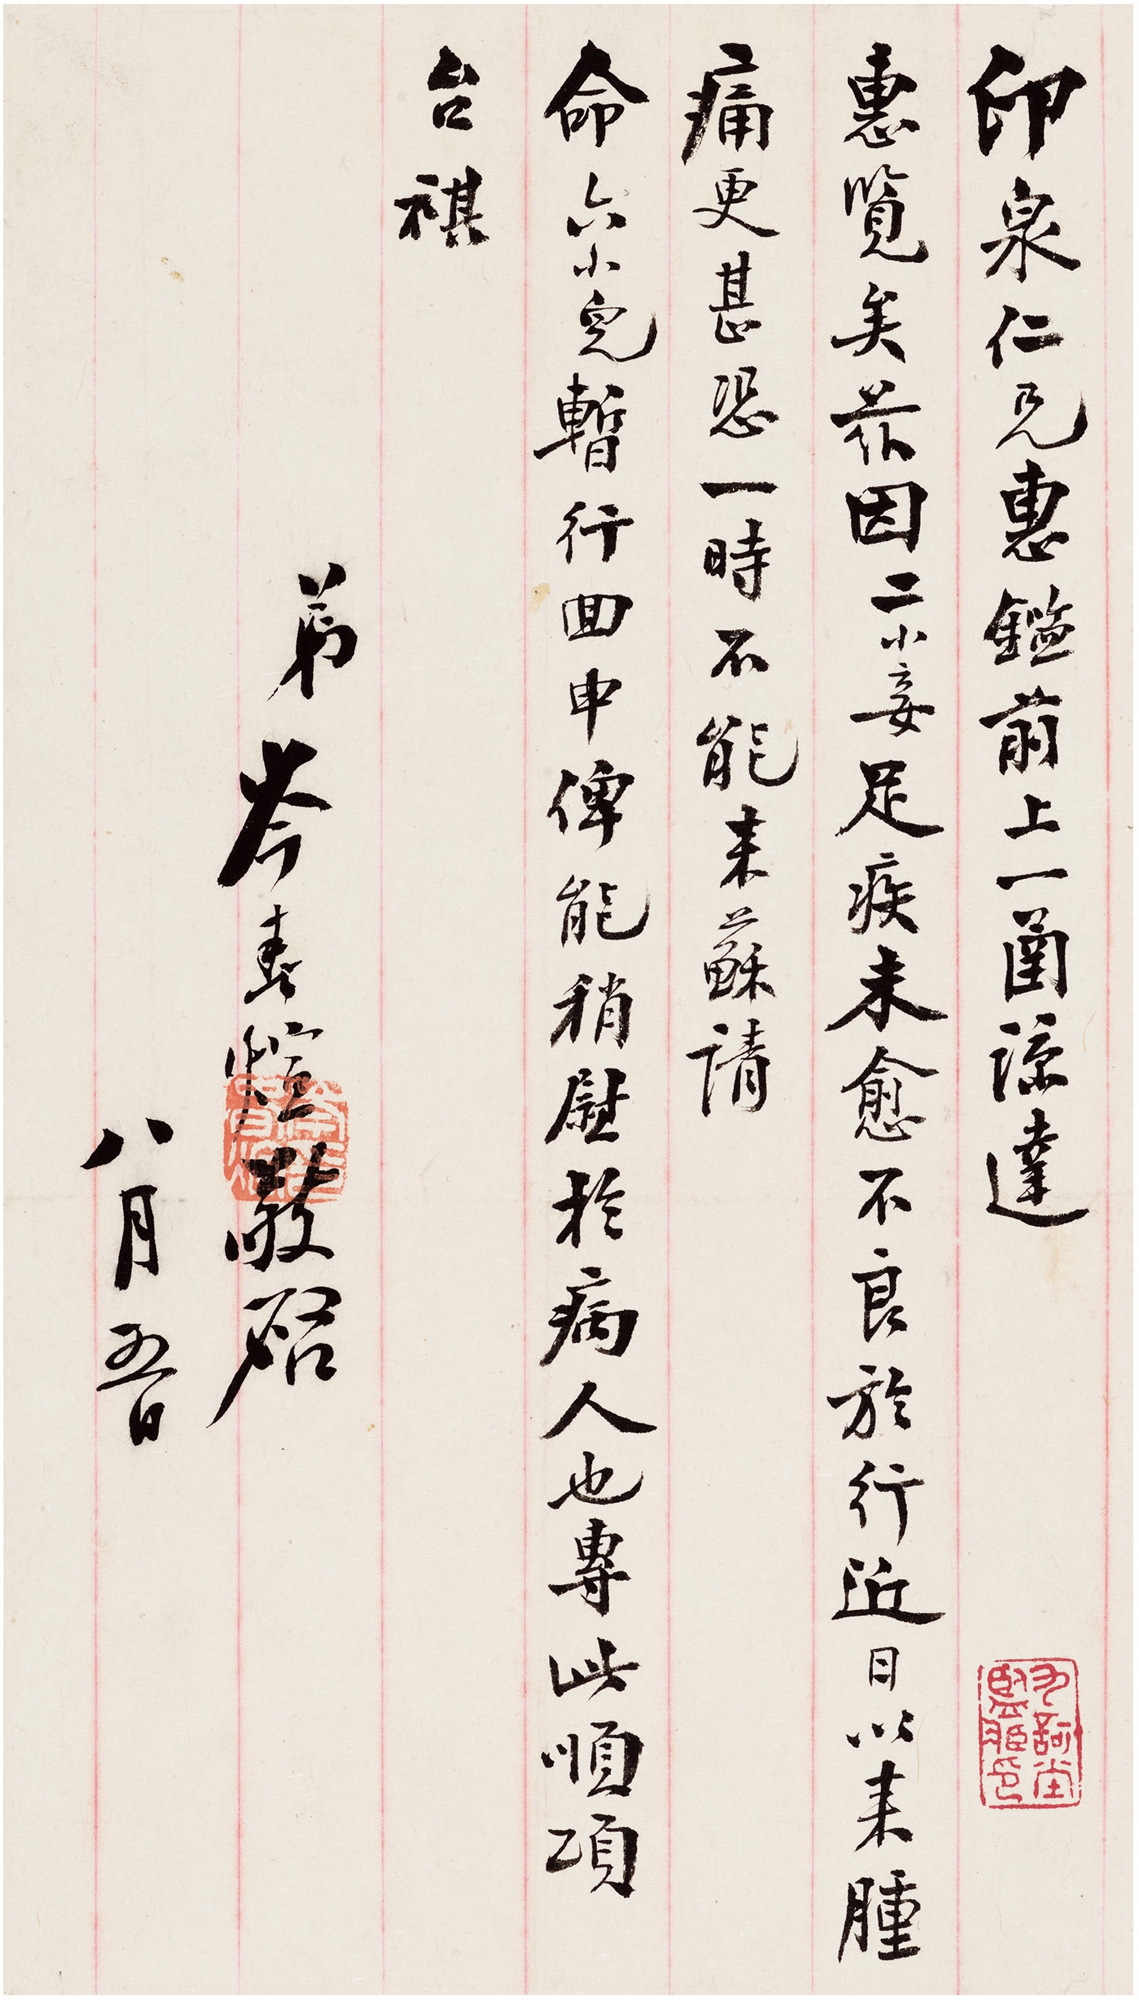 印泉仁兄惠鑑前上一圅諒達
惠覽矣茲因二小妾足疾未愈不良於行近日以來腫
痛更甚恐一時不能來蘇請
命六小兒暫行回申俾能稍慰於病人也專此順頌
台祺
弟岑春煊敬啓
八月五日
岑春煊